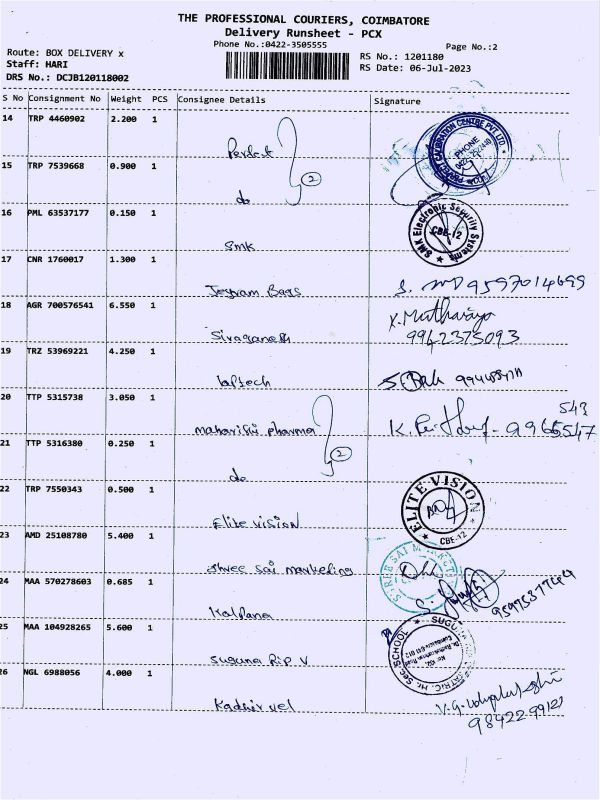 THE PROFESSIONAL COURIERS, COIMBATORE
Delivery Runsheet - PCX
Phone No.:0422-3505555
Page No.:2
Route: BOX DELIVERY x
RS No.: 1201180
Staff: HARI
RS Date: 06-Jul-2023
DRS No.: DCJB120118002
S No Consignment No Weight PCS Consignee Details Signature
14 TRP 4460902 2.200 1
Perfect
15 TRP 7539668 0.900 1
2
do
16 PML 63537177 0.150 1
SMK
S.M.K Electronic Security Systems
CBE-12
17 CNR 1760017 1.300 1
Jeyram Bags
9597014699
18 AGR 700576541 6.550 1
Sivaganesh
9962375093
19 TRZ 53969221 4.250 1
laptech
20 TTP 5315738 3.050 1
maharishi pharma
21 TTP 5316380 0.250 1
2
do
22 TRP 7550343 0.500 1
Elite vision
ELITE VISION
CBE-12
23 AMD 25108780 5.400 1
shree sai marketing
24 MAA 570278603 0.685 1
Kalpana
25 MAA 104928265 5.600 1
suguna Rip V
26 NGL 6988056 4.000 1
Kadhirvel